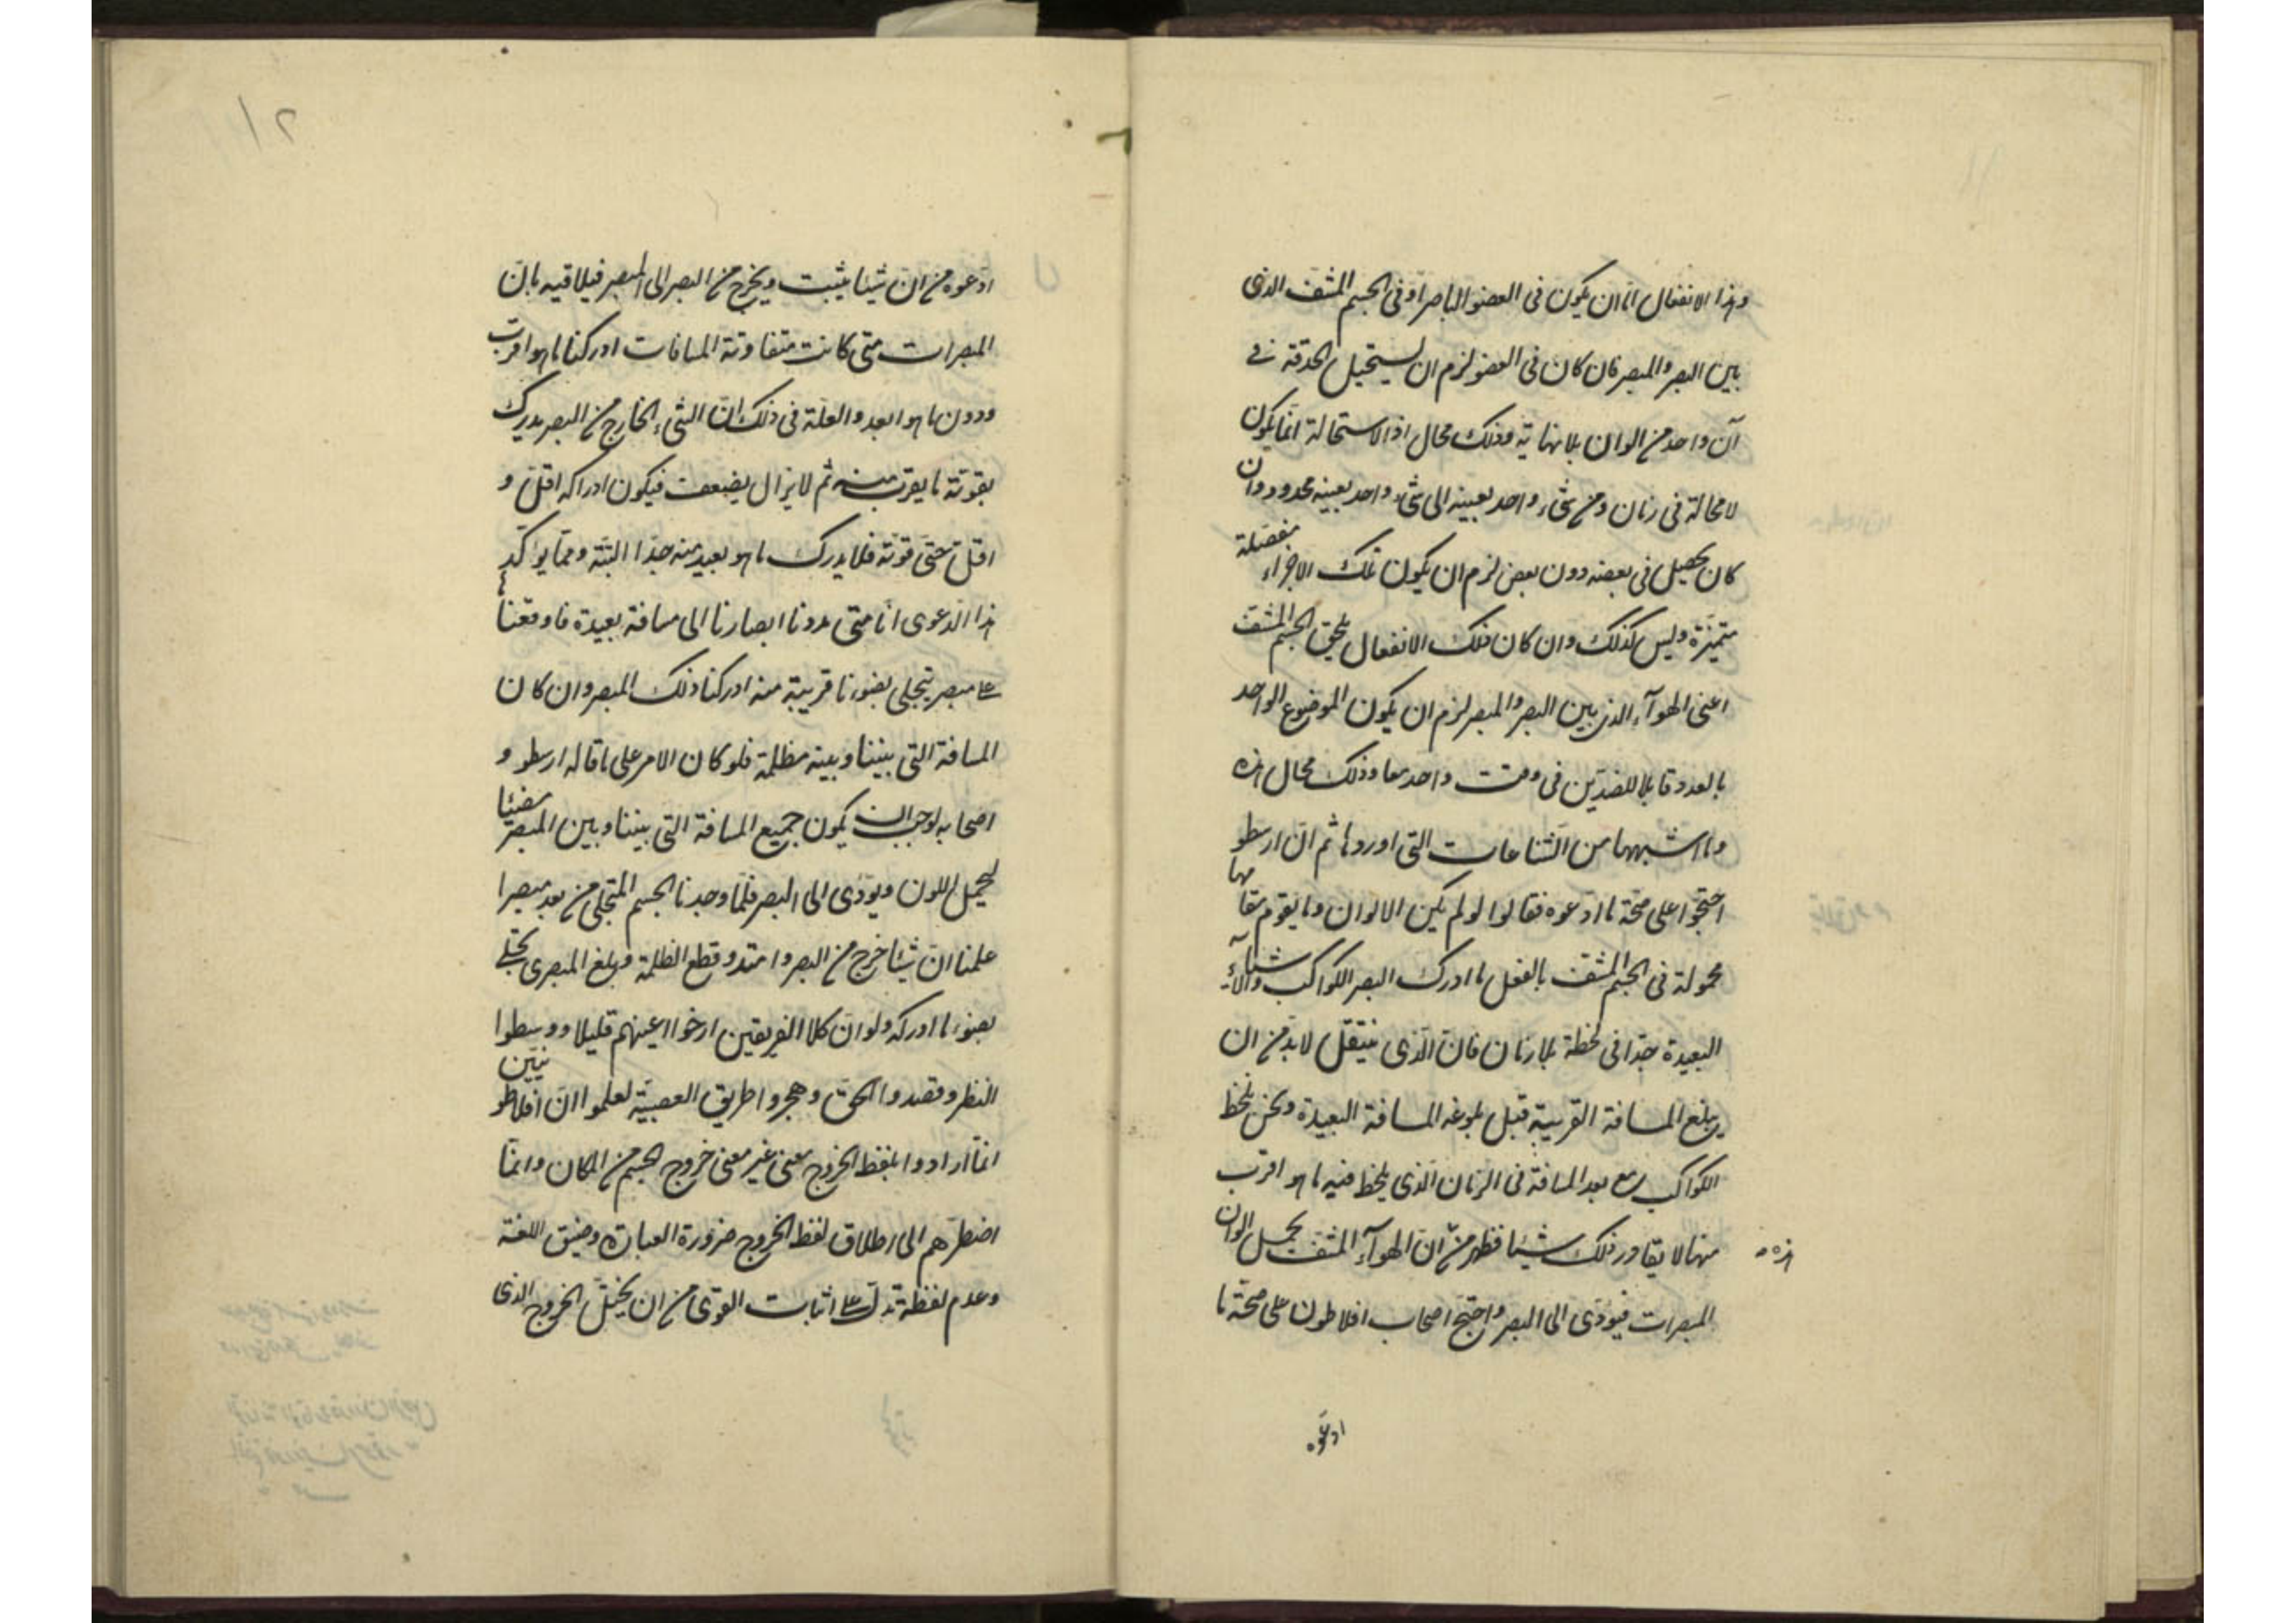 وهذا الانفعال اما ان يكون فى العضو الباصر او فى الجسم المشف الذى
بين البصر والمبصر فان كان فى العضو لزم ان يستحيل الحدقة فى
آن واحد من الوان بلا نهاية وذلك محال اذ الاستحالة انما يكون
لا محالة فى زمان ومن شىء واحد بعينه الى شىء واحد بعينه محدود وان
كان يحصل فى بعضه دون بعض لزم ان يكون تلك الاجزاء منفصلة
متميزة وليس كذلك وان كان ذلك الانفعال يلحق الجسم المشف
اعنى الهوآء الذى بين البصر والمبصر لزم ان يكون الموضوع الواحد
بالعدد قابلا للضدين فى وقت واحد معا وذلك محال هذه
وما اشبهها من الشناعات التى اوردوها ثم ان ارسطو
احتجوا على صحة ما ادعوه فقالوا لو لم يكن الالوان وما يقوم مقامها
محمولة فى الجسم المشف بالفعل ما ادرك البصر الكواكب والاشيآء
البعيدة جدا فى لحظة بلا زمان فان الذى ينتقل لا بد من ان
يبلغ المسافة القريبة قبل بلوغه المسافة البعيدة ونحن نلحظ
الكواكب مع بعد المسافة فى الزمان الذى يلحظ فيه ما هو اقرب
منها لا يغادر ذلك شيئا فظهر من ان الهوآء المشف يحمل الوان
هذه
المبصرات فيؤدى الى البصر واحتج اصحاب افلاطون على صحة ما
ادعوه
١٢
ادعوه من ان شيئا يثبت ويخرج من البصر الى المبصر فيلاقيه بان
المبصرات متى كانت متفاوتة المسافات ادركنا ما هو اقرب
ودون ما هو ابعد والعلة فى ذلك ان الشىء الخارج من البصر يدرك
بقوته ما يقرب منه ثم لا يزال يضعف فيكون ادراكه اقل و
اقل حتى قوته فلا يدرك ما هو بعيد منه جدا البتة ومما يؤكد
هذا الدعوى انا متى مددنا ابصارنا الى مسافة بعيدة فاوقعنا
على مبصر يتجلى بضوء نار قريبة منه ادركنا ذلك المبصر وان كان
المسافة التى بيننا وبينه مظلمة فلو كان الامر على ما قاله ارسطو و
اصحابه لوجب ان يكون جميع المسافة التى بيننا وبين المبصر مضيئا
ليحمل اللون ويؤدى الى البصر فلما وجدنا الجسم المتجلى من بعد مبصرا
علمنا ان شيئا خرج من البصر وامتد وقطع الظلمة وبلغ المبصر تجلى
بضوء ما ادركه ولو ان كلا الفريقين ارخوا اعينهم قليلا ووسطوا
النظر وقصدوا الحق وهجروا طريق العصبية لعلموا ان افلاطونيين
انما ارادوا بلفظ الخروج معنى غير معنى خروج الجسم من المكان وانما
اضطرهم الى اطلاق لفظ الخروج ضرورة العبارة وضيق اللغة
وعدم لفظة تدل على اثبات القوى من ان يخيل الخروج الذى